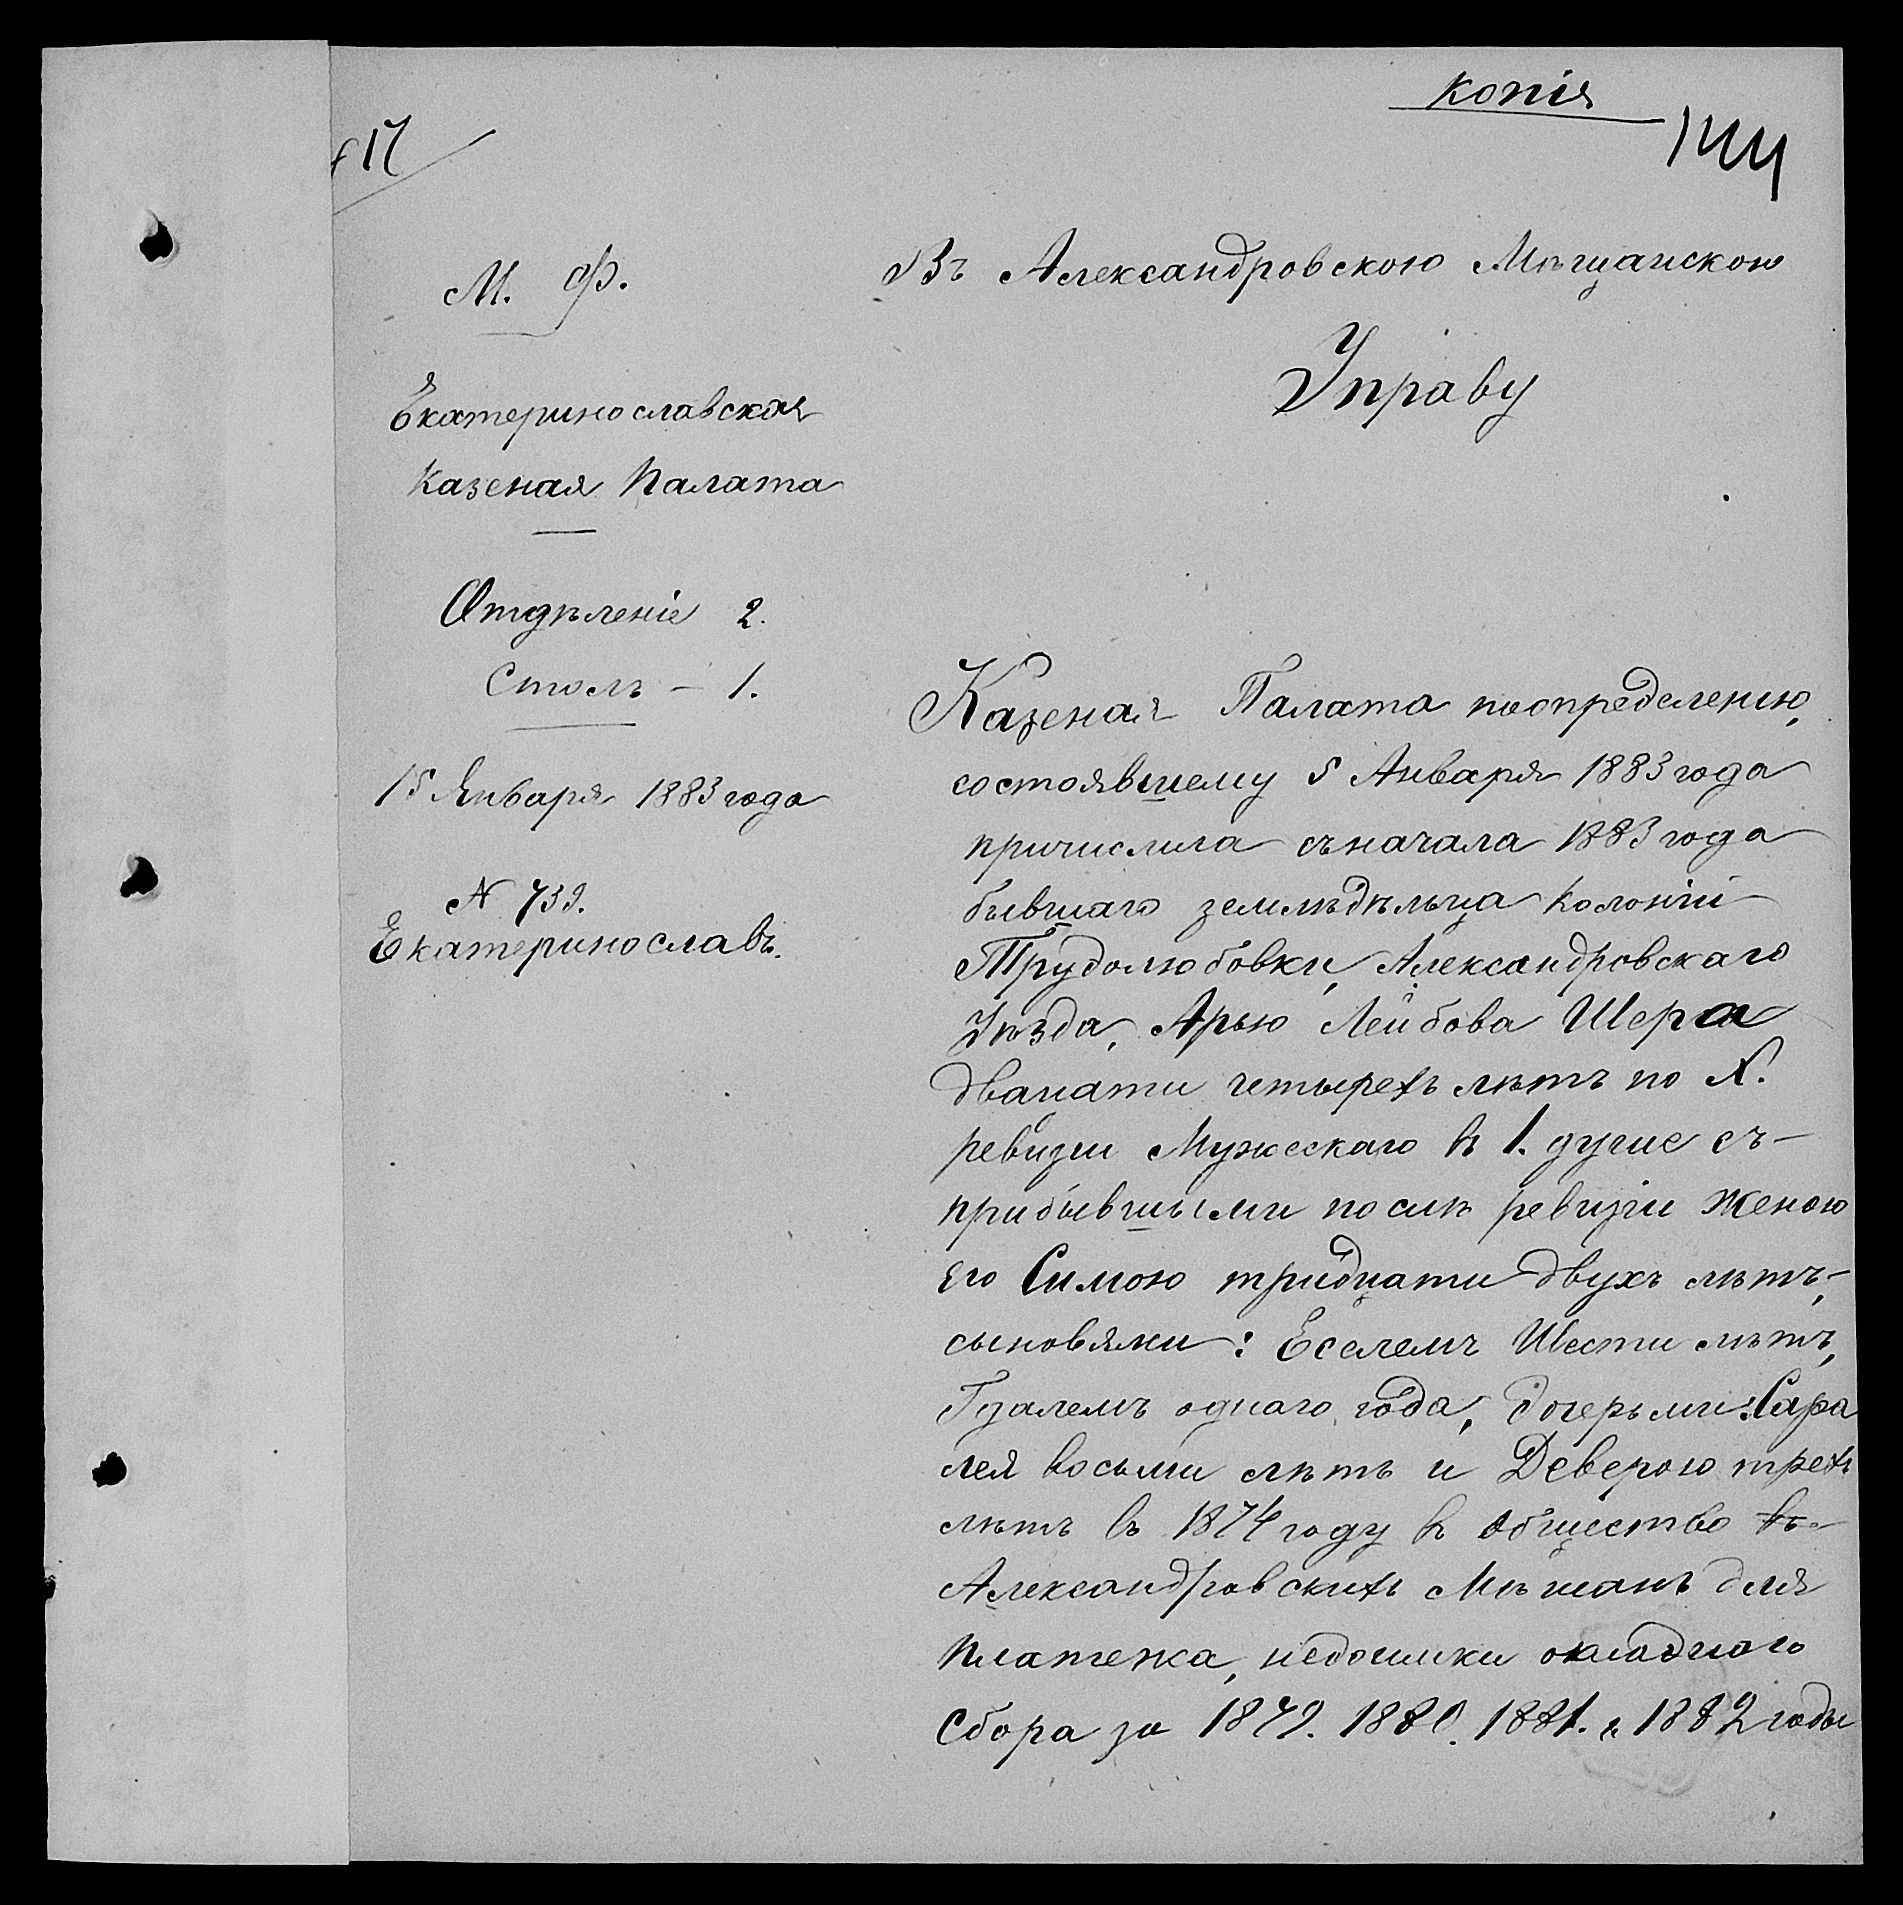 копія
144
17
М. Ф.
Екатеринославская
Казеная Палата
Отдѣленіе 2.
Столъ – 1.
15 Января 1883 года
№ 739.
Екатеринославъ.
Въ Александровскою Мѣщанскою
Управу
Казеная Палата поопределенію,
состоявшему 5 Января 1883 года
причислила съначала 1883 года
бывшаго землѣдѣльца колоніи
Трудолюбовки, Александровскаго
Уѣзда, Арью Лейбова Шера
дванати четырехъ лѣтъ по X.
ревизіи Мужескаго в 1. душе съ
прибывшыми послѣ ревизіи женою
его Симою тридцати двухъ лѣтъ,
сыновями: Еселемъ Шести лѣтъ,
Гдалемъ однаго года, дочерьми: Сара
лея восьми лѣтъ и Деверою трехъ
лѣтъ въ 1874 году в общество въ
Александровскихъ Мѣшанъ для
платежа, недоимки окладного
Сбора за 1879. 1880. 1881. и 1882 годы